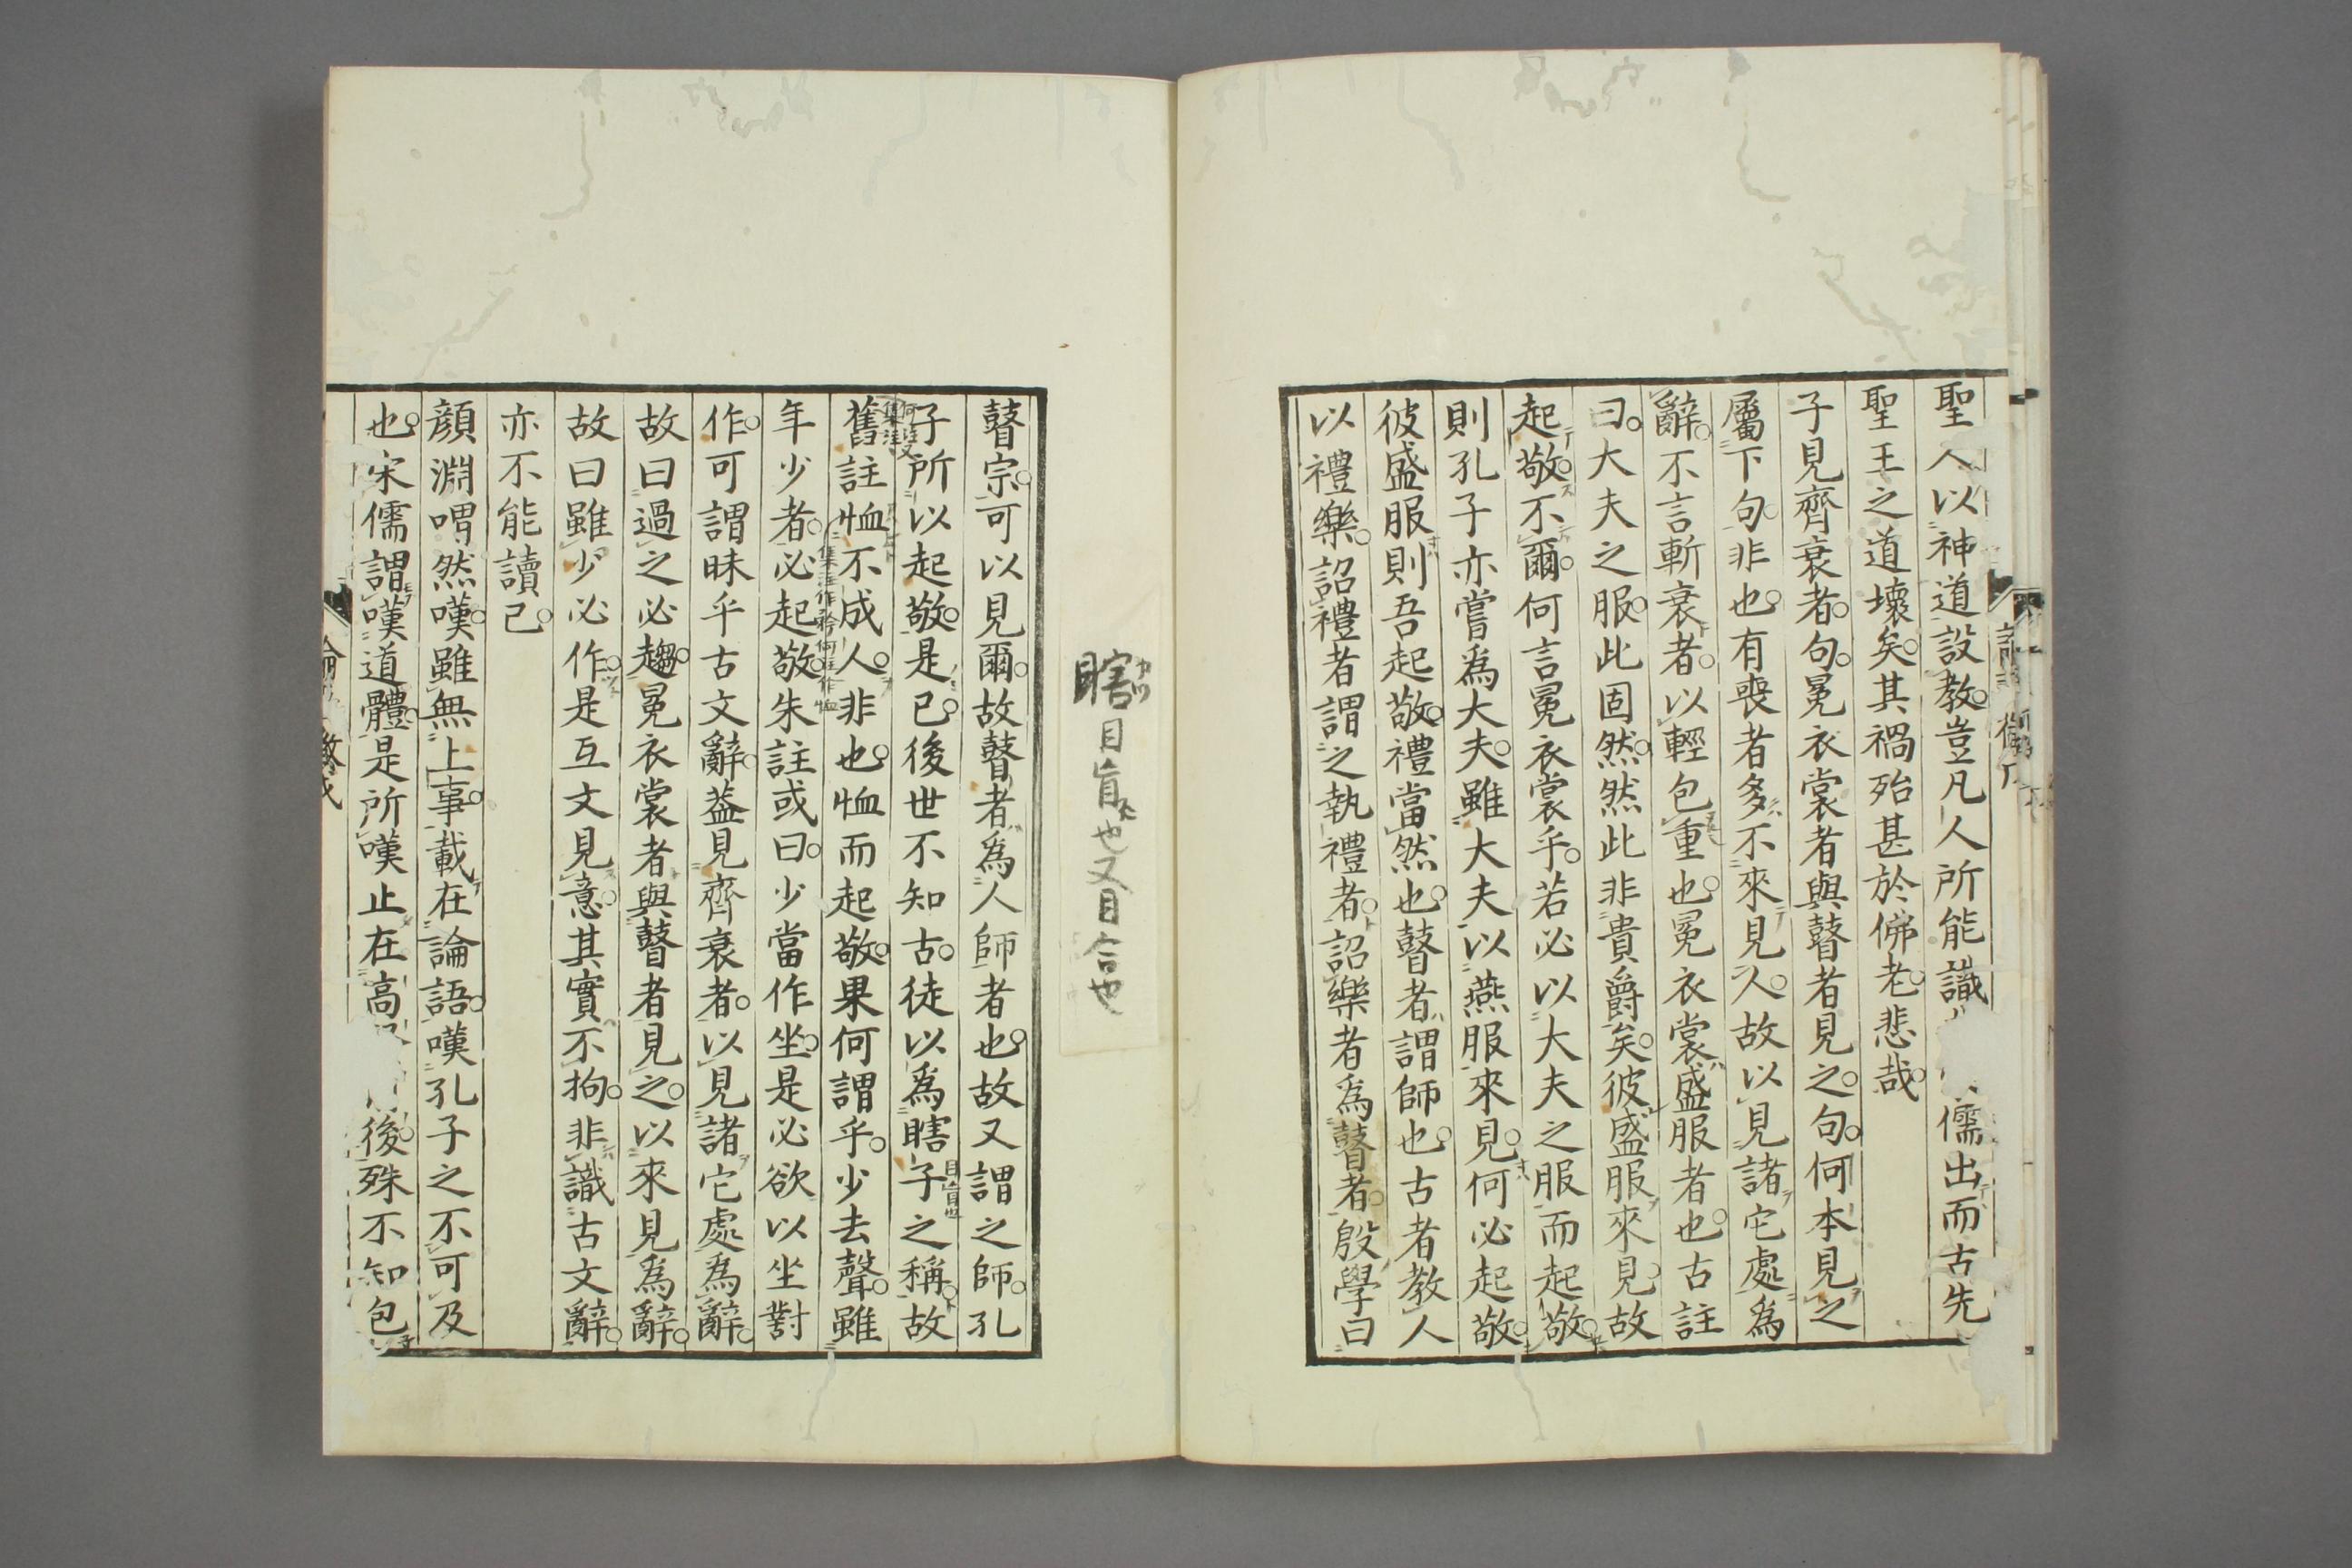 聖人以神道設教。豈凡人所能識 儒出而古先
聖王之道壞矣。其禍殆甚於佛老。悲哉。
子見齊衰者。句。冕衣裳者與瞽者見之。句。何本見之
屬下句。非也。有喪者多不來見人。故以見諸它處爲
辭。不言斬衰者。以輕包重也。冕衣裳盛服者也。古註
曰。大夫之服。此固然。然此非貴爵矣。彼盛服來見故
起敬。不爾。何言冕衣裳乎。若必以大夫之服而起敬。
則孔子亦嘗爲大夫。雖大夫以燕服來見。何必起敬。
彼盛服則吾起敬。禮當然也。瞽者謂師也。古者教人
以禮樂。詔禮者謂之執禮者。詔樂者爲瞽者。殷學曰
瞎目盲也又目合也
瞽宗。可以見爾。故瞽者爲人師者也。故又謂之師。孔
子所以起敬。是已。後世不知古。徒以爲瞎子之稱。故
目盲也
舊註恤不成人。非也。恤而起敬。果何謂乎。少去聲。雖
集注作矜何注作恤
年少者。必起敬。朱註或曰。少當作坐。是必欲以坐對
作。可謂昧乎古文辭。葢見齊衰者。以見諸它處爲辭。
故曰過之必趨。冕衣裳者與瞽者見之。以來見爲辭。
故曰雖少必作。是互文見意。其實不拘。非識古文辭。
亦不能讀已。
顏淵喟然嘆。雖無上事。載在論語。嘆孔子之不可及
也。宋儒謂嘆道體。是所嘆止在高 後。殊不知包